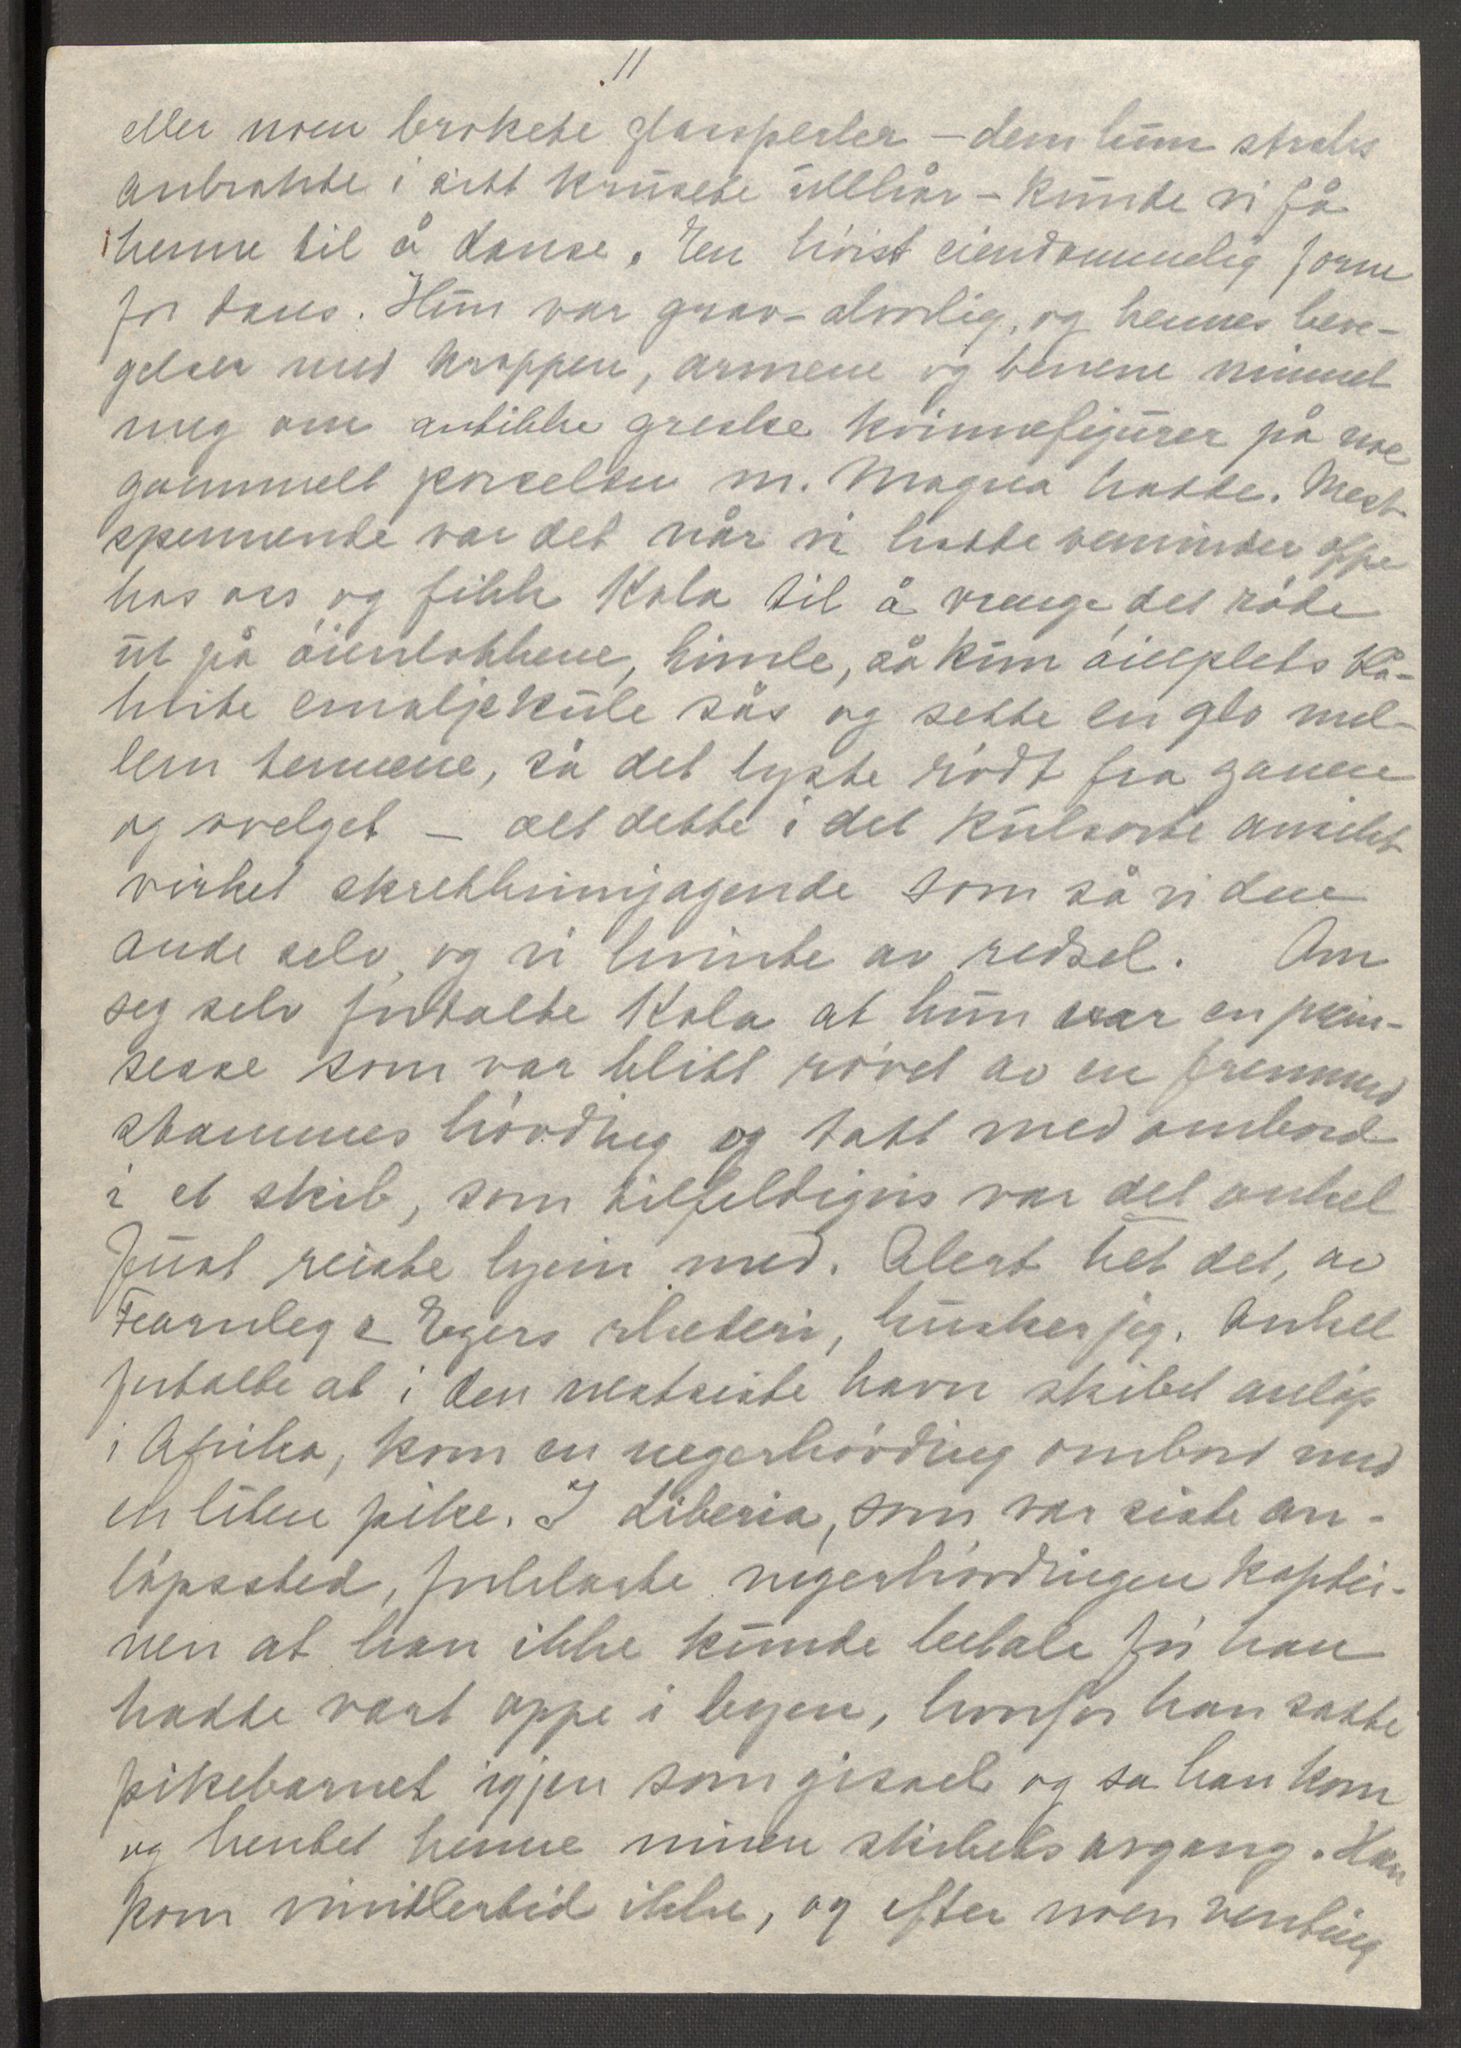 11
eller noen brokete glassperler – dem hun straks
anbrakte i sitt krusete ullhår – kunde vi få
henne til å danse. En høist eiendommelig form
for dans. Hun var grav-alvorlig, og hennes beve-
gelser med kroppen, armene og benene minnet
meg om antikke greske kvinnefigurer på noe
gammelt porselen m. Magna hadde. Mest
spennende var det når vi hadde veninder oppe
hos oss og fikk Kola til å vrenge det røde
ut på øienlokkene, himle, så kun øieeplets
hvite emaljekule sås og sette en glo mel-
lem tennene, så det lyste rødt fra ganen
og svelget – alt dette i det kulsorte ansikt
virket skrekkinnjagende som så vi den
onde selv, og vi hvinte av redsel. Om
seg selv fortalte Kola at hun var en prin-
sesse som var blitt røvet av en fremmed
stammes høvding og tatt med ombord
i et skib, som tilfeldigvis var det onkel
Just reiste hjem med. Alert het det, av
Fearnley & Egers rhederi, husker jeg. Onkel
fortalte at i den nestsiste havn skibet anløp
i Afrika, kom en negerhøvding ombord med
en liten pike. I Liberia, som var siste an-
løpssted, forklarte negerhøvdingen kaptei-
nen at han ikke kunde betale før han
hadde vært oppe i byen, hvorfor han satte
pikebarnet igjen som gissel og sa han kom
og hentet henne innen skibets avgang. Han
kom imidlertid ikke, og efter noen venting